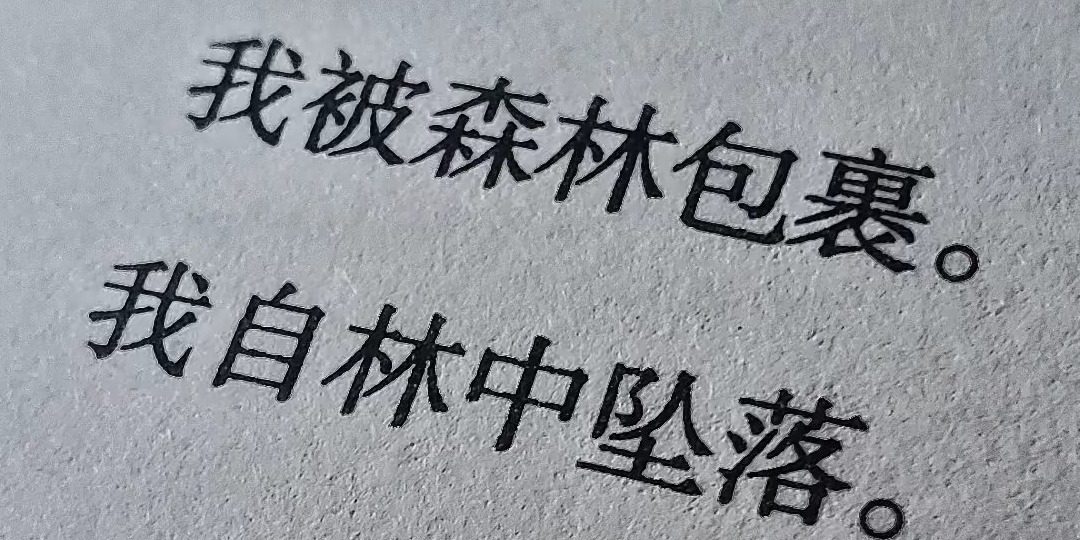 我被森林包裹。
我自林中坠落。